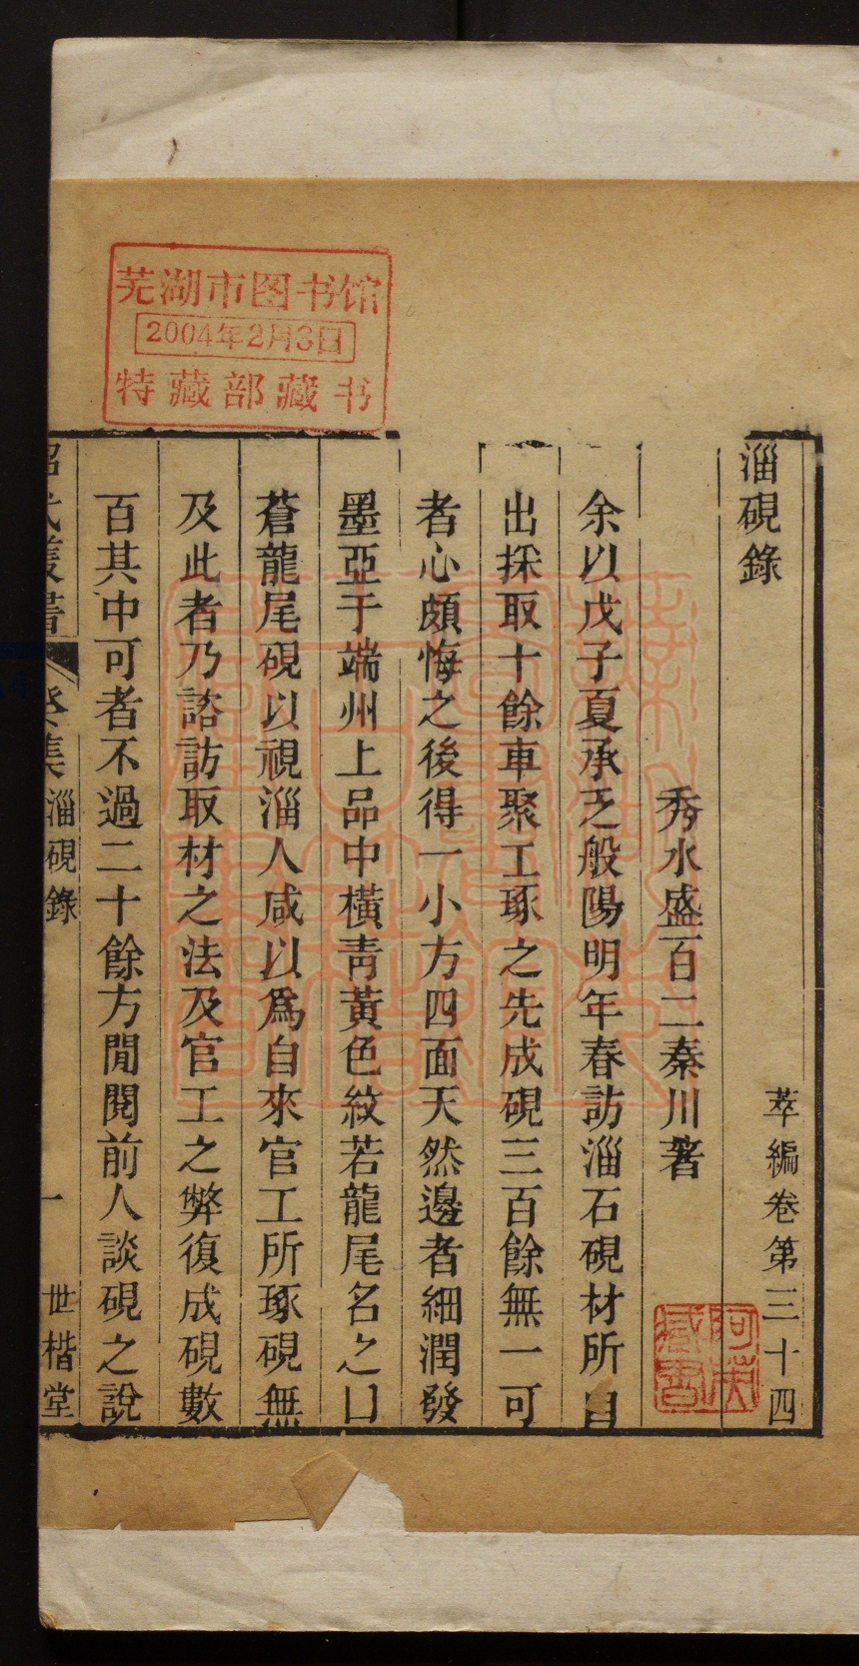 淄硯錄
萃編卷第三十四
秀水盛百二秦川著
余以戊子夏承乏般陽明年春訪淄石硯材所自
出採取十餘車聚工琢之先成硯三百餘無一可
者心頗悔之後得一小方四面天然邊者細潤發
墨亞于端州上品中橫青黃色紋若龍尾名之曰
蒼龍尾硯以視淄人咸以爲自來官工所琢硯無
及此者乃諮訪取材之法及官工之弊復成硯數
百其中可者不過二十餘方閒閱前人談硯之說
昭代叢書 癸集 淄硯錄 一 世楷堂
芜湖市图书馆
2004年2月3日
特藏部藏书